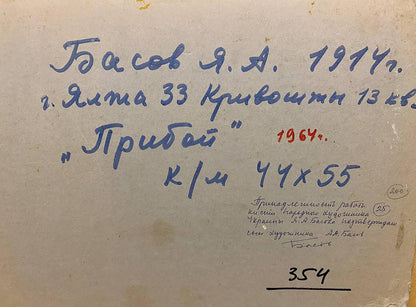 Басов Я.А. 1914г.
г. Ялта 33 Кривошты 13 кв.
„Прибой" 1964г.
к/м 44х55
260
Принадлежность работы
кисти народного художника 25
Украины Я.А. Басова подтверждаю
сын художника А.А. Басов
Басов
354